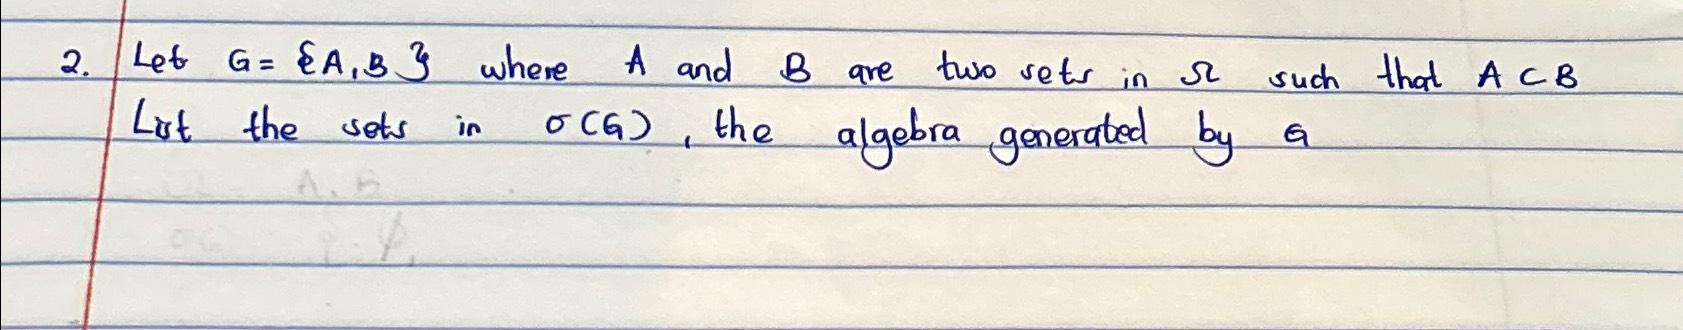 2. Let G = {A, B} where A and B are two sets in Ω such that A ⊂ B
List the sets in σ(G), the algebra generated by G
A, B